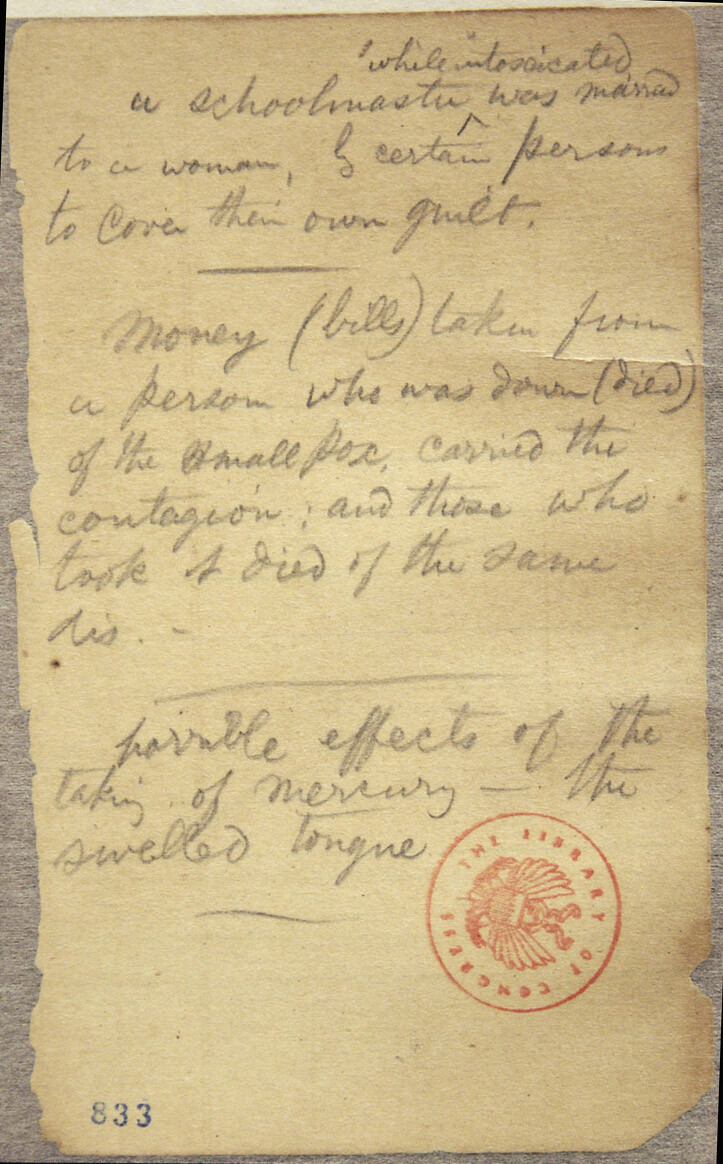 while intoxicated
a schoolmaster ^ was married
to a woman, by certain persons
to cover their own guilt.
Money (bills) taken from
a person who was down (died)
of the small pox, carried the
contagion; and those who
took it died of the same
dis. -
horrible effects of the
taking of mercury — the
swelled tongue
THE LIBRARY OF CONGRESS
833